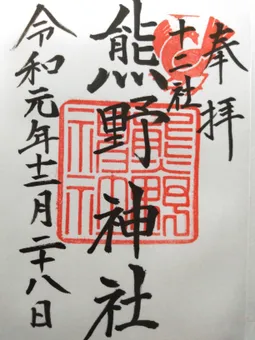 奉拝
十二社
熊野神社
熊野
神社
令和元年十二月二十八日